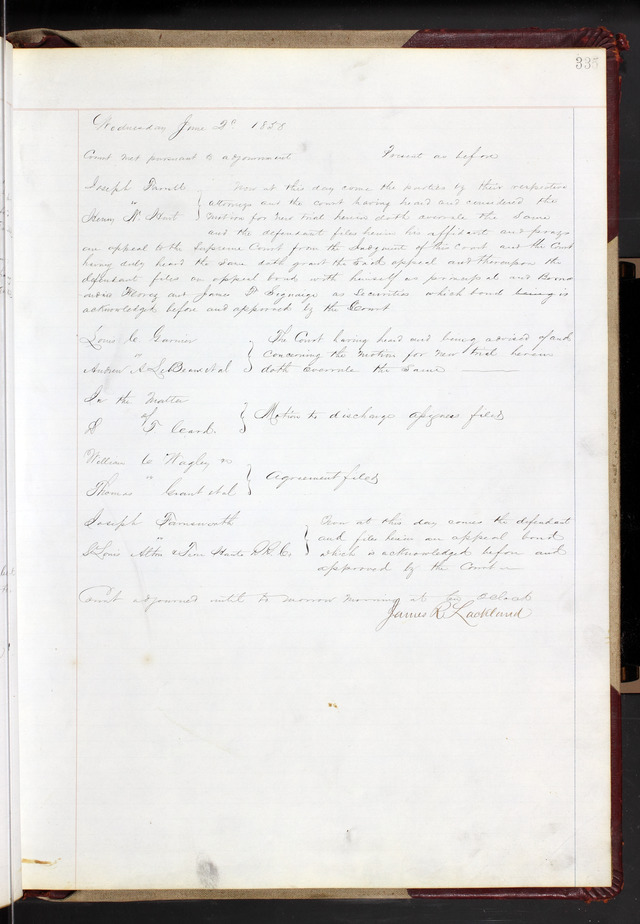 335
Wednesday June 2d 1858
Court met pursuant to adjournment Present as before
Joseph
" Now at this day come the parties by their respective
Henry N Hart attorneys and the court having heard and considered the
motion for new trial herein doth overrule the same
and the defendant files herein his affidavit and prays
an appeal to the Supreme Court from the Judgment of the Court and the Court
having duly heard the same doth grant the said appeal and thereupon the
defendant files an appeal bond with himself as principal and
and James as Securities which bond being is
acknowledged before and approved by the Court
Louis C Garnier } The Court having heard and being advised of and
" concerning the motion for new trial herein
Andrew A LeBeau et al doth overrule the same
In the Matter
of } Motion to discharge filed
D T Card
William C Wagley
" } Agreement filed
Thomas Grant et al
Joseph Farnsworth } Now at this day comes the defendant
" and files herein an appeal bond
St Louis Alton & Terre Haute R.R. Co. which is acknowledged before and
approved by the Court
Court adjourned until to morrow morning at O Clock
James R Lackland